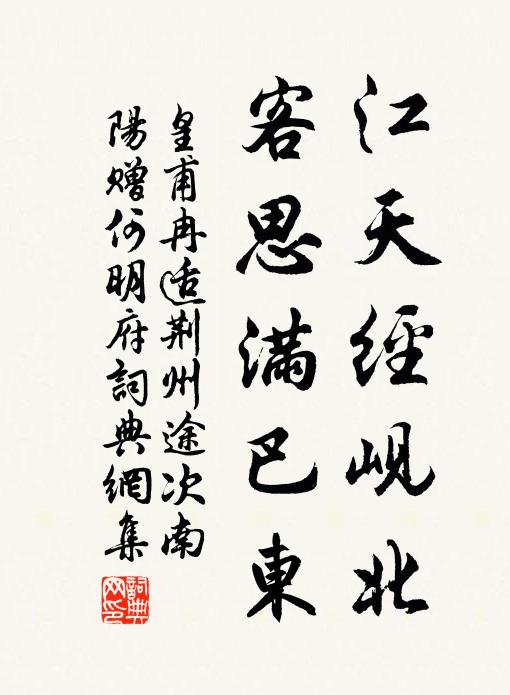 江天經峴北
客思滿巴東
皇甫冉適荆州途次南
陽贈何明府詞典網集
詞典網印